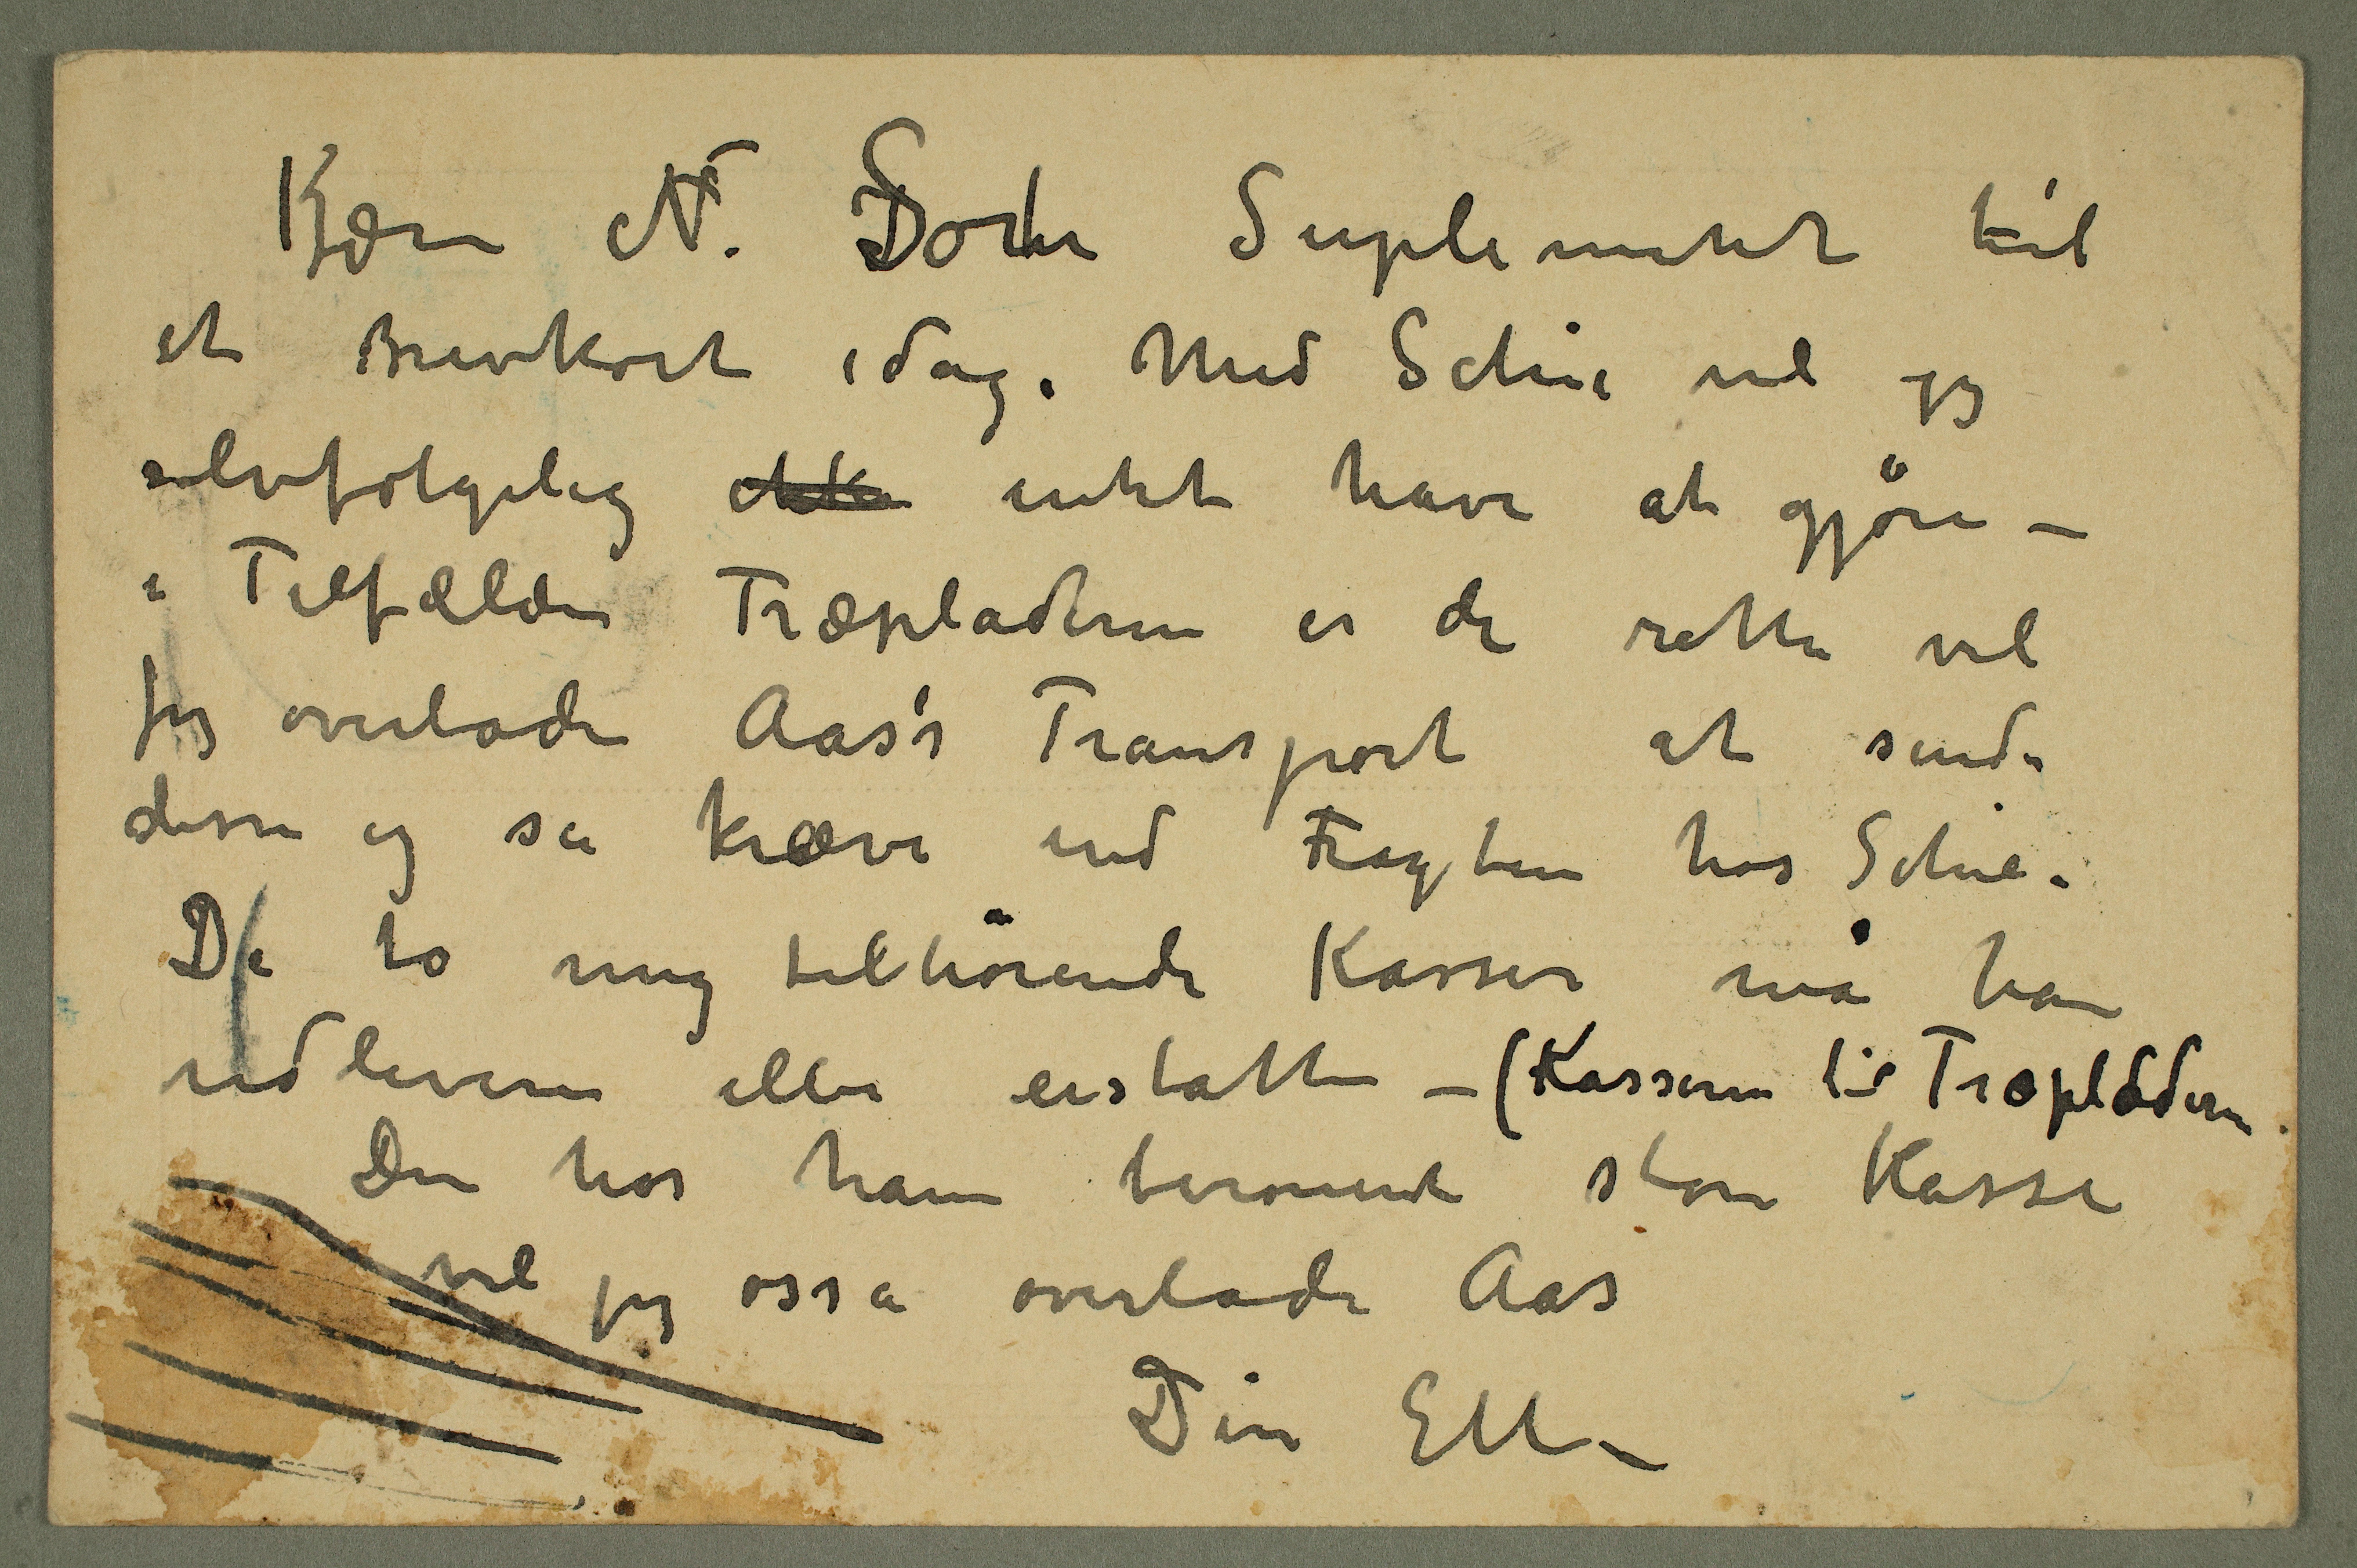 Kjære N. Sorte Suplementet til
et Brevkort idag. Med Schie vil jeg
selvfølgelig ikke intet have at gjøre –
i Tilfælde Træpladerne er de rette vil
jeg overlade Aas's Transport at sende
disse og så kræve ind Fragten hos Schie.
De to mig tilhørende Kasser må han
udlevere eller erstatte – (Kasserne til Træpladerne
Den hos ham beroende store Kasse
vil jeg osså overlade Aas
Din EM